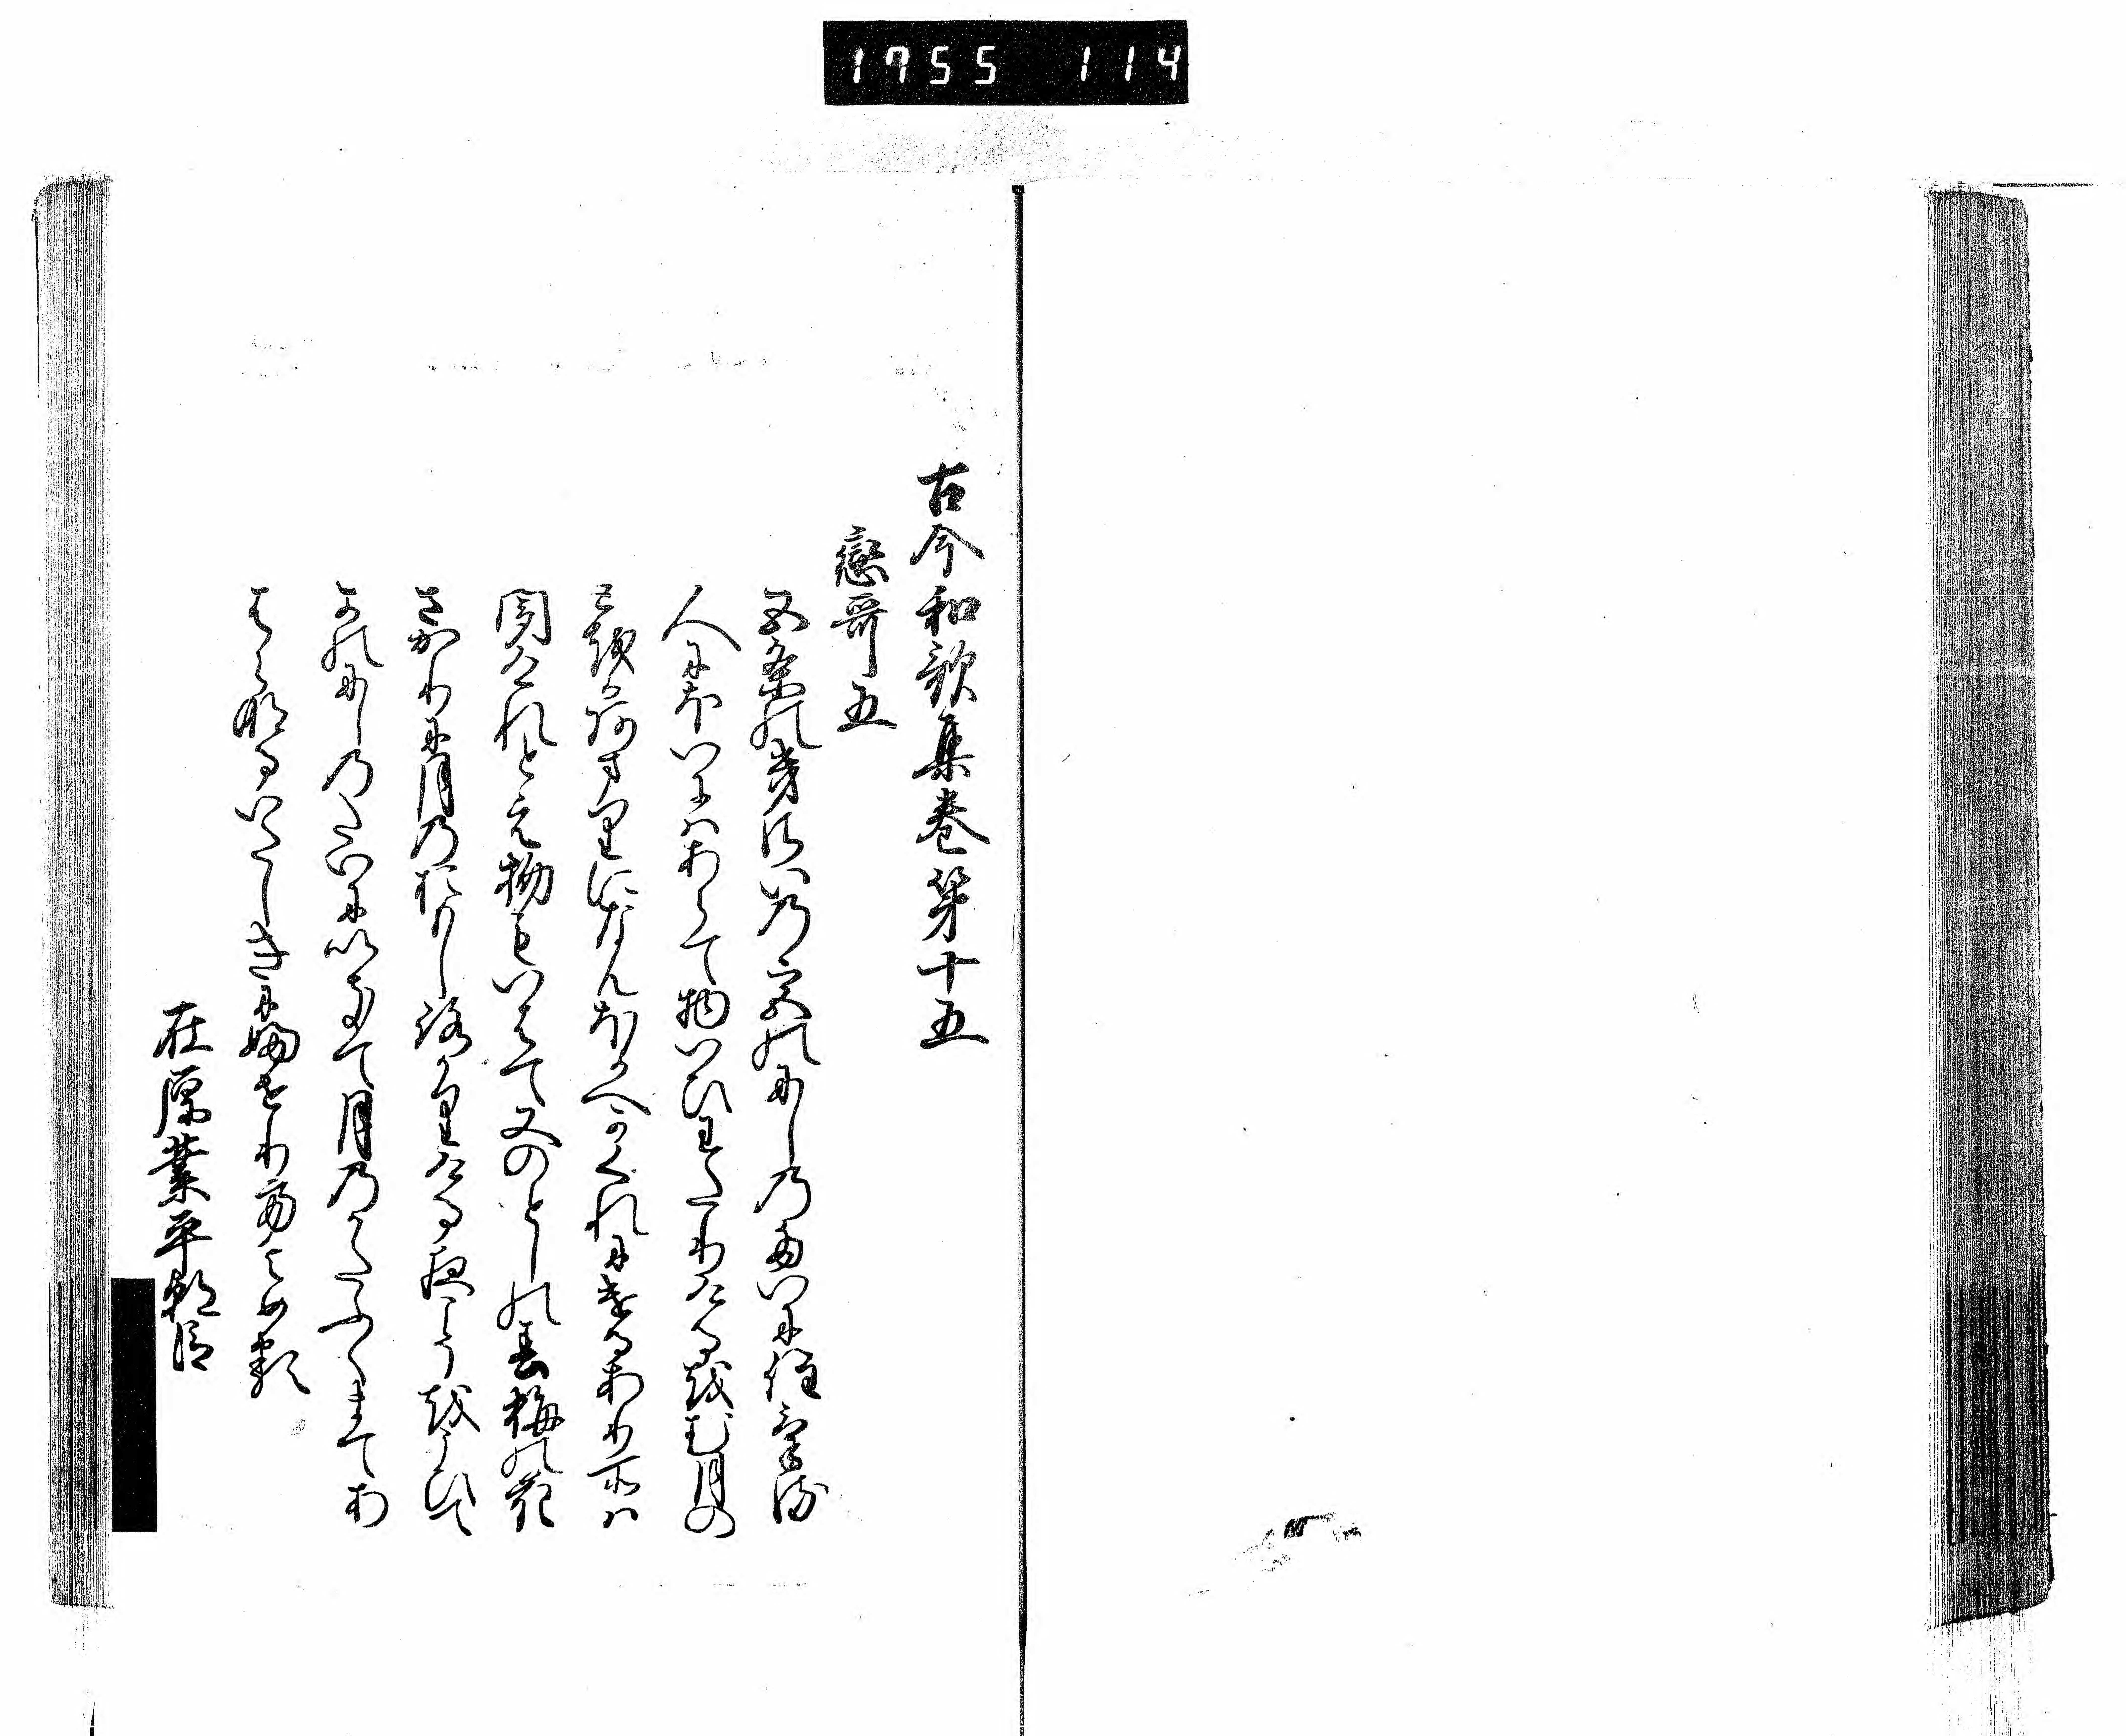 1755 114
古今和歌集巻第十五
戀哥五
五条のきさいの宮のにしのたいにすみける
人にほいにはあらて物いひわたりけるをむ月の
とをかあまりになんほかへかくれにけるあり所は
聞けれとえ物もいはて又のとしの春梅の花
さかりに月のおもしろかりける夜こそをこひて
かのにしのたいにいきて月のかたふくまてあ
はらなるいたしきにふせりてよめる
在原業平朝臣